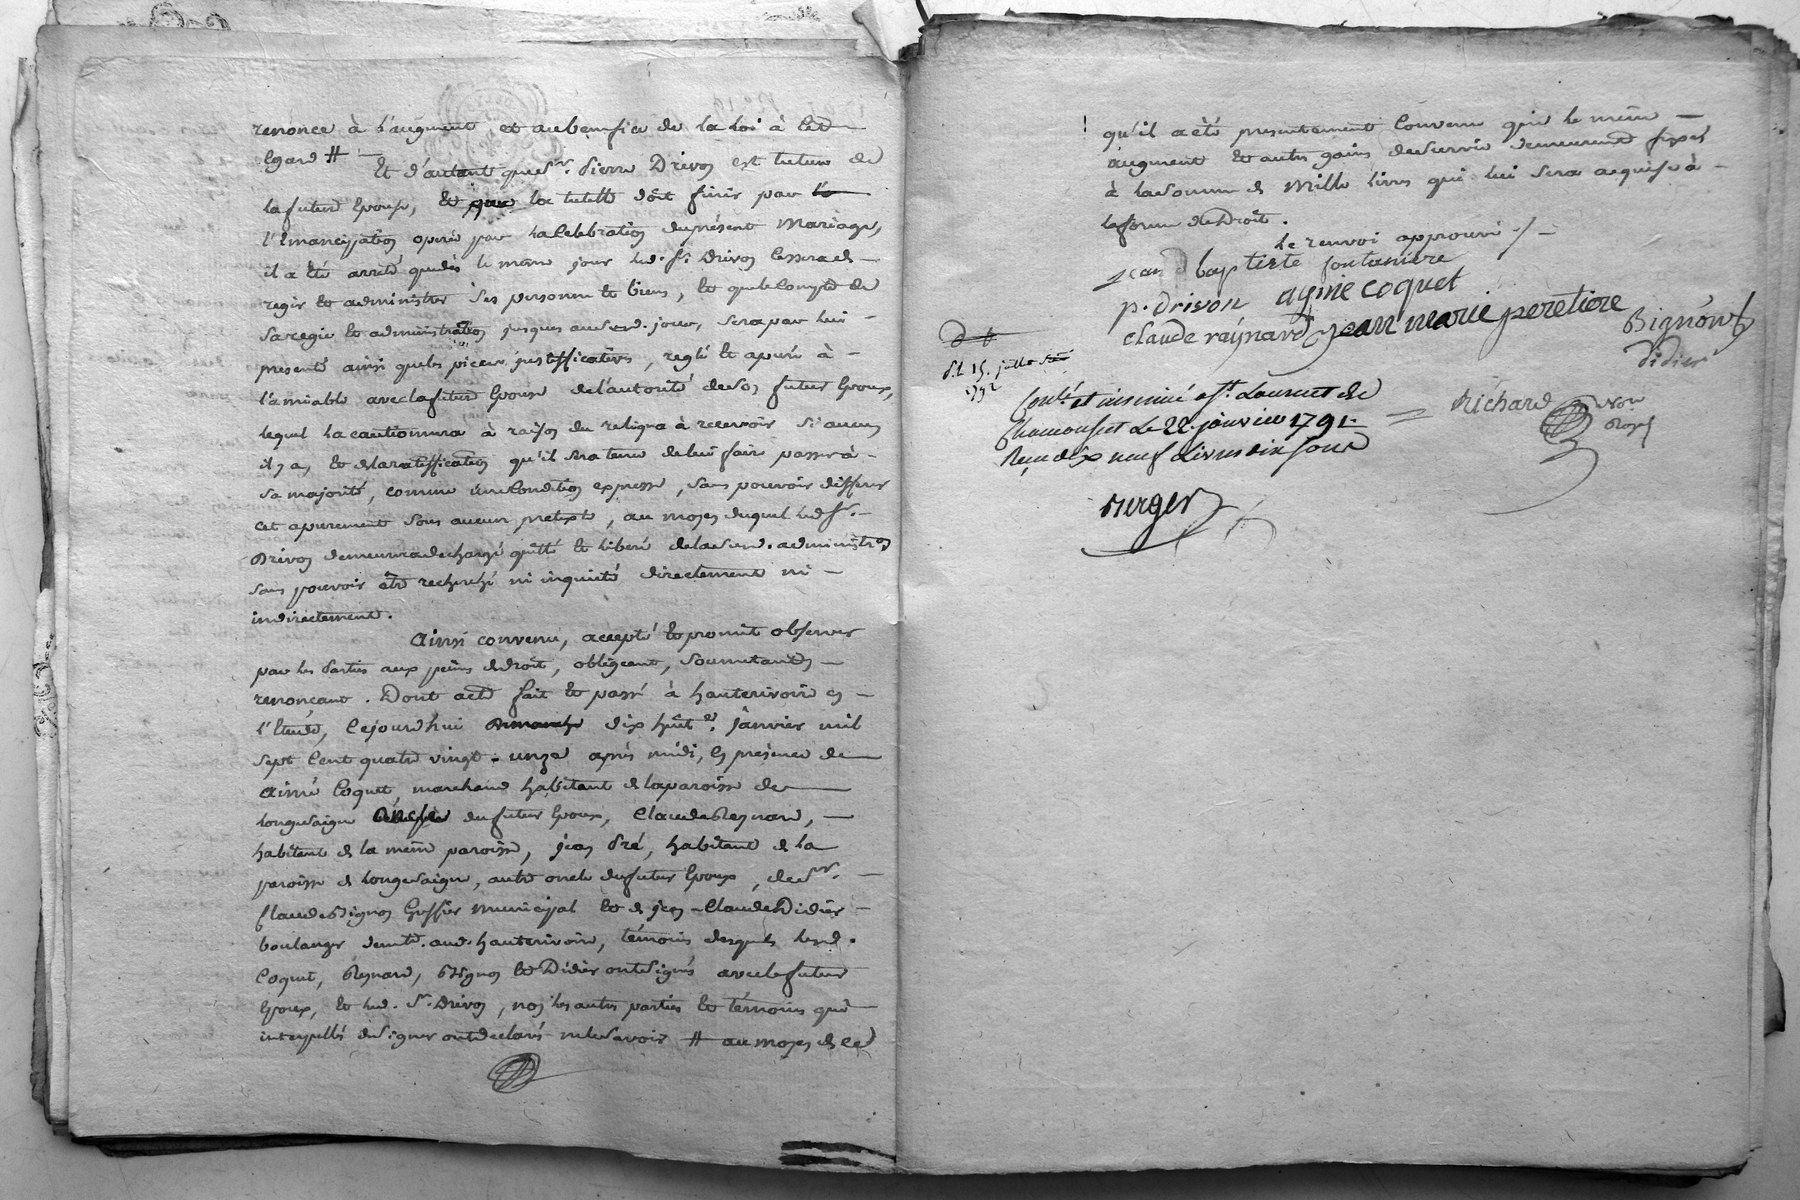 renonce à l'augment et au benefice de la Loi à cet
Egard #
Et d'autant que Sr. Pierre Drivon est tuteur de
la future Epouse, et que la tutelle doit finir par
l'Emancipation operée par la Celebration du présent Mariage,
il a été arreté que dès le même jour led. Sr. Drivon cessera de
regir et administrer ses personne et biens, et que le Compte de
sa regie et administration jusques audit. jour, sera par lui
presenté ainsi que les pieces justifficatives, reglé et apuré à
l'amiable avec la future Epouse de l'autorité de son futur Epoux,
lequel la cautionnera à raison du reliqua à recevoir si aucun
il y a, et de la ratiffication qu'il sera tenu de lui faire passer à
sa majorité, comme une Condition expresse, sans pouvoir differer
cet apurement sous aucun pretexte, au moyen duquel led. Sr.
Drivon demeurera dechargé quitté et liberé de lad. administron
sans pouvoir être recherché ni inquieté directement ni
indirectement.
Ainsi convenu, accepté et promit observer
par les Parties aux peines de droit, obligeant, soumettants
renoncant. Dont acte fait et passé à hauterivoire en
l'Etude, Cejourd'hui dix huit janvier mil
sept Cent quatre vingt - unze après midi, En présence de
Aimé Coquet, marchand habitant de la paroisse de
Longesaigne du futur Epoux, Claude Reynard,
habitant de la même paroisse, jean Pré, habitant de la
paroisse de Longesaigne, autre oncle du futur Epoux, de Sr.
Claude Bignon Greffier Municipal et de jean-Claude Didier
boulanger demt. aud. hauterivoire, témoins desquels lesd.
Coquet, Reynard, Bignon et Didier ont signés avec le futur
Epoux, et led. Sr. Drivon, non les autres parties et témoins qui
interpellés de signer ont declaré ne le savoir # au moyen de ce
qu'il a été presentement Convenu que le même
augment et autres gains de survie demeurent fixés
à la Somme de Mille livres qui lui sera acquise à
la forme du Droit.
Le renvoi approuvé ./.
jean baptiste fontaniere
p. drivon ayme coquet
claude raynard jean marie peretiere Bignon
didier
Richard Nore
Royl
d. t.
d.t. 15. juillet
1792
Conlé. et insinué a St. Laurent de
Chamousset le 22. janvier 1791.
Reçu dix neuf Livres dix sous
Berger